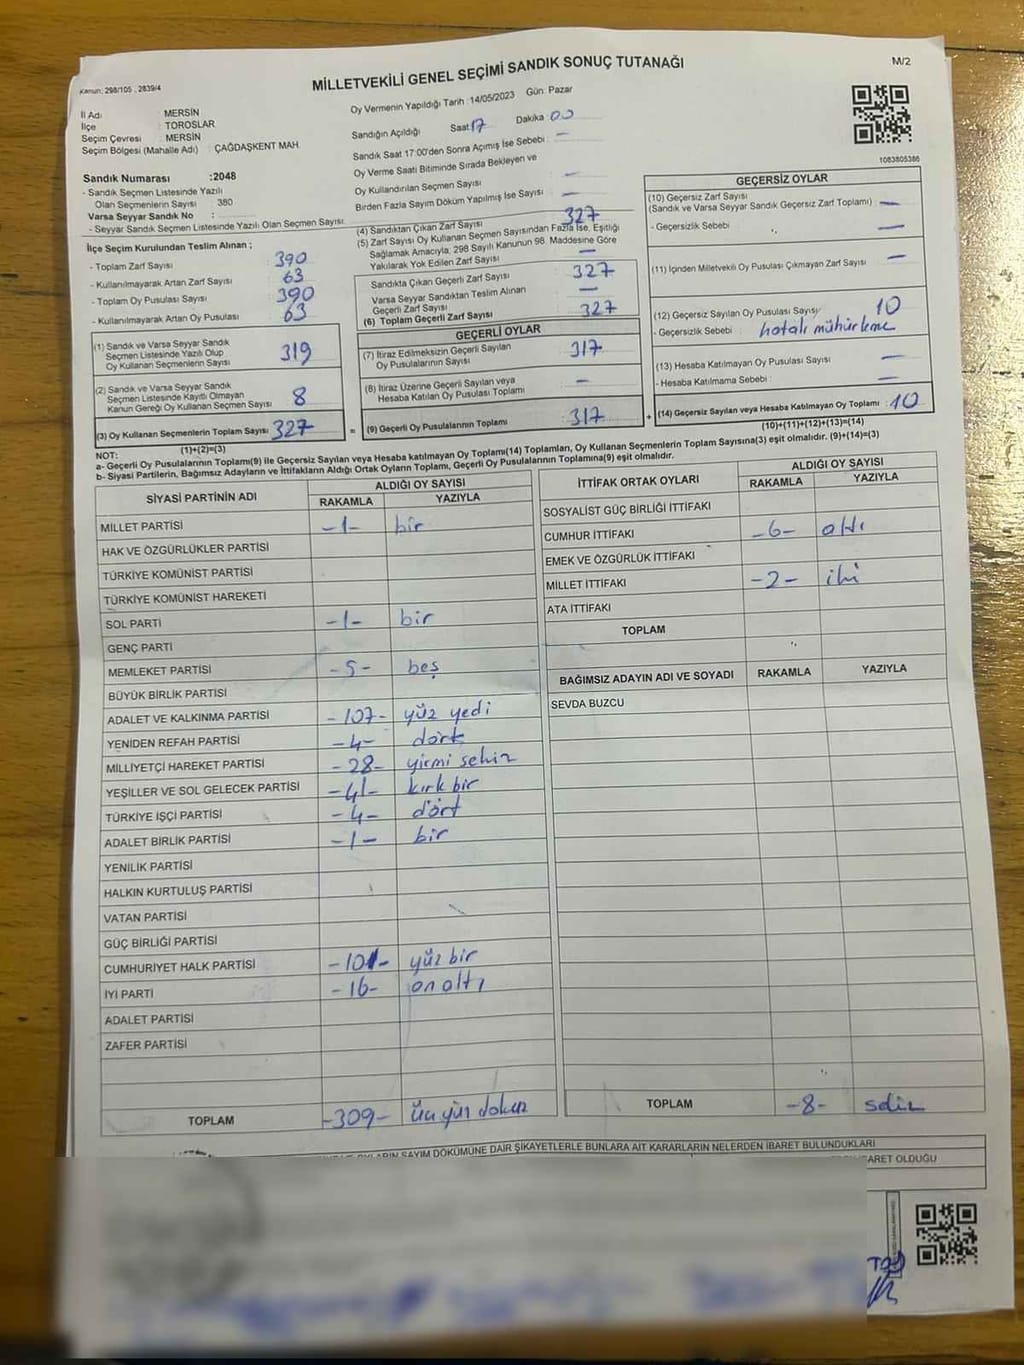 Kanun: 298/105 , 2839/4
MİLLETVEKİLİ GENEL SEÇİMİ SANDIK SONUÇ TUTANAĞI
M/2
İl Adı MERSİN
İlçe TOROSLAR
Seçim Çevresi MERSİN
Seçim Bölgesi (Mahalle Adı) ÇAĞDAŞKENT MAH.
Sandık Numarası :2048
- Sandık Seçmen Listesinde Yazılı
Olan Seçmenlerin Sayısı : 380
Varsa Seyyar Sandık No :
- Seyyar Sandık Seçmen Listesinde Yazılı Olan Seçmen Sayısı:
Oy Vermenin Yapıldığı Tarih :14/05/2023 Gün: Pazar
Sandığın Açıldığı Saat 17 Dakika 00
Sandık Saat 17:00'den Sonra Açımış İse Sebebi : —
Oy Verme Saati Bitiminde Sırada Bekleyen ve
Oy Kullandırılan Seçmen Sayısı —
Birden Fazla Sayım Döküm Yapılmış İse Sayısı —
1083805386
İlçe Seçim Kurulundan Teslim Alınan ;
- Toplam Zarf Sayısı : 390
- Kullanılmayarak Artan Zarf Sayısı : 63
- Toplam Oy Pusulası Sayısı : 390
- Kullanılmayarak Artan Oy Pusulası : 63
(1) Sandık ve Varsa Seyyar Sandık
Seçmen Listesinde Yazılı Olup
Oy Kullanan Seçmenlerin Sayısı : 319
(2) Sandık ve Varsa Seyyar Sandık
Seçmen Listesinde Kayıtlı Olmayan
Kanun Gereği Oy Kullanan Seçmen Sayısı : 8
(3) Oy Kullanan Seçmenlerin Toplam Sayısı : 327
(1)+(2)=(3)
(4) Sandıktan Çıkan Zarf Sayısı 327
(5) Zarf Sayısı Oy Kullanan Seçmen Sayısından Fazla İse, Eşitliği
Sağlamak Amacıyla, 298 Sayılı Kanunun 98. Maddesine Göre
Yakılarak Yok Edilen Zarf Sayısı : —
Sandıkta Çıkan Geçerli Zarf Sayısı : 327
Varsa Seyyar Sandıktan Teslim Alınan
Geçerli Zarf Sayısı : —
(6) Toplam Geçerli Zarf Sayısı : 327
GEÇERLİ OYLAR
(7) İtiraz Edilmeksizin Geçerli Sayılan
Oy Pusulalarının Sayısı : 317
(8) İtiraz Üzerine Geçerli Sayılan veya
Hesaba Katılan Oy Pusulası Toplamı : —
= (9) Geçerli Oy Pusulalarının Toplamı : 317 +
GEÇERSİZ OYLAR
(10) Geçersiz Zarf Sayısı
(Sandık ve Varsa Seyyar Sandık Geçersiz Zarf Toplamı) : —
- Geçersizlik Sebebi : —
(11) İçinden Milletvekili Oy Pusulası Çıkmayan Zarf Sayısı : —
(12) Geçersiz Sayılan Oy Pusulası Sayısı : 10
- Geçersizlik Sebebi : hatalı mühürleme
(13) Hesaba Katılmayan Oy Pusulası Sayısı : —
- Hesaba Katılmama Sebebi : —
(14) Geçersiz Sayılan veya Hesaba Katılmayan Oy Toplamı : 10
(10)+(11)+(12)+(13)=(14)
NOT:
a- Geçerli Oy Pusulalarının Toplamı(9) ile Geçersiz Sayılan veya Hesaba katılmayan Oy Toplamı(14) Toplamları, Oy Kullanan Seçmenlerin Toplam Sayısına(3) eşit olmalıdır. (9)+(14)=(3)
b- Siyasi Partilerin, Bağımsız Adayların ve İttifakların Aldığı Ortak Oyların Toplamı, Geçerli Oy Pusulalarının Toplamına(9) eşit olmalıdır.
SİYASİ PARTİNİN ADI ALDIĞI OY SAYISI
RAKAMLA YAZIYLA
MİLLET PARTİSİ -1- bir
HAK VE ÖZGÜRLÜKLER PARTİSİ
TÜRKİYE KOMÜNİST PARTİSİ
TÜRKİYE KOMÜNİST HAREKETİ
SOL PARTİ -1- bir
GENÇ PARTİ
MEMLEKET PARTİSİ -5- beş
BÜYÜK BİRLİK PARTİSİ
ADALET VE KALKINMA PARTİSİ -107- yüz yedi
YENİDEN REFAH PARTİSİ -4- dört
MİLLİYETÇİ HAREKET PARTİSİ -28- yirmi sekiz
YEŞİLLER VE SOL GELECEK PARTİSİ -41- kırk bir
TÜRKİYE İŞÇİ PARTİSİ -4- dört
ADALET BİRLİK PARTİSİ -1- bir
YENİLİK PARTİSİ
HALKIN KURTULUŞ PARTİSİ
VATAN PARTİSİ
GÜÇ BİRLİĞİ PARTİSİ
CUMHURİYET HALK PARTİSİ -101- yüz bir
İYİ PARTİ -16- on altı
ADALET PARTİSİ
ZAFER PARTİSİ
TOPLAM -309- üç yüz dokuz
İTTİFAK ORTAK OYLARI ALDIĞI OY SAYISI
RAKAMLA YAZIYLA
SOSYALİST GÜÇ BİRLİĞİ İTTİFAKI
CUMHUR İTTİFAKI -6- altı
EMEK VE ÖZGÜRLÜK İTTİFAKI
MİLLET İTTİFAKI -2- iki
ATA İTTİFAKI
TOPLAM
BAĞIMSIZ ADAYIN ADI VE SOYADI RAKAMLA YAZIYLA
SEVDA BUZCU
TOPLAM -8- sekiz
SAYIM DÖKÜMÜNE DAİR ŞİKAYETLERLE BUNLARA AİT KARARLARIN NELERDEN İBARET BULUNDUKLARI
OLDUĞU